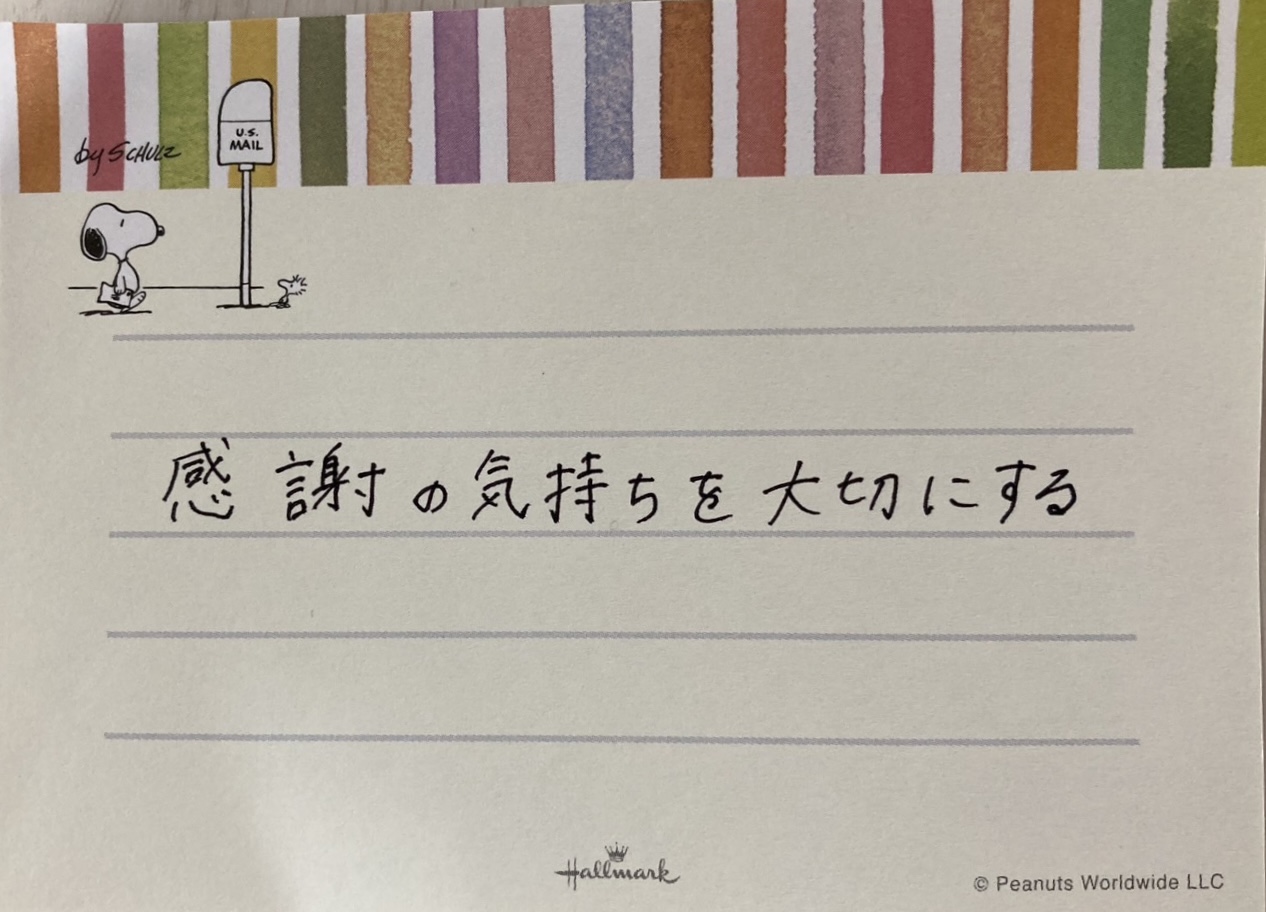 by SCHULZ
U.S.
MAIL
感謝の気持ちを大切にする
Hallmark
© Peanuts Worldwide LLC